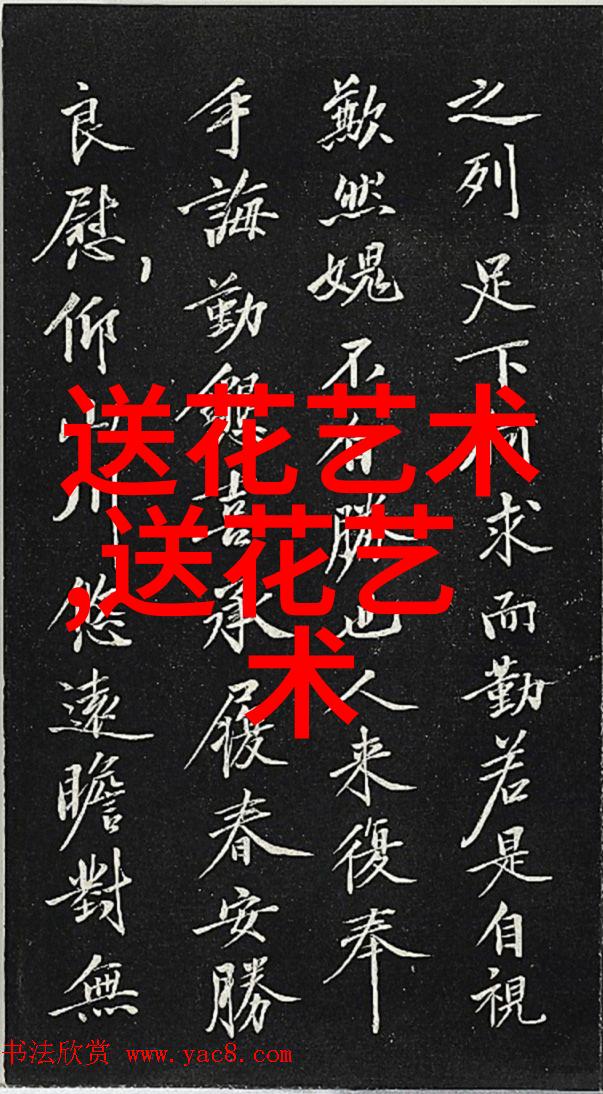 之列足下何求而勤若是自視
歉然媿不有勝也人来復奉
手誨勤懇喜承履春安勝
良慰，仰山川悠遠瞻對無
送花艺术
,送花艺
术
书法欣赏 www.yac8.com